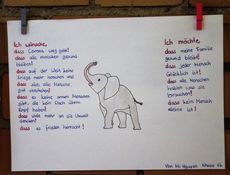 Ich wünsche,
dass Corona weg geht!
dass alle Menschen gesund
bleiben!
dass auf der Welt keine
Kriege mehr herrschen und
dass alle Menschen
gut verstehen!
dass es keine armen Menschen
gibt, die kein Dach überm
Kopf haben!
dass mehr an die Umwelt
denken!
dass es Frieden herrscht!
Ich möchte,
dass meine Familie
gesund bleibt!
dass jeder Mensch
Glücklich ist!
dass alle Menschen
brauchen!
dass kein Mensch
alleine ist!
Von Ali Klasse